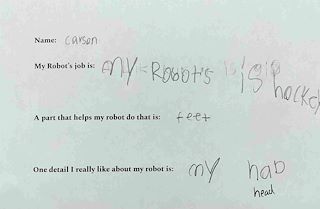 Name: carson
My Robot's job is: my Robot's is
hockey
A part that helps my robot do that is: feet
One detail I really like about my robot is: my hab
head